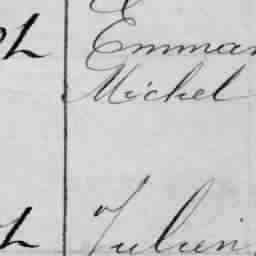 Emman
Michel
Julien